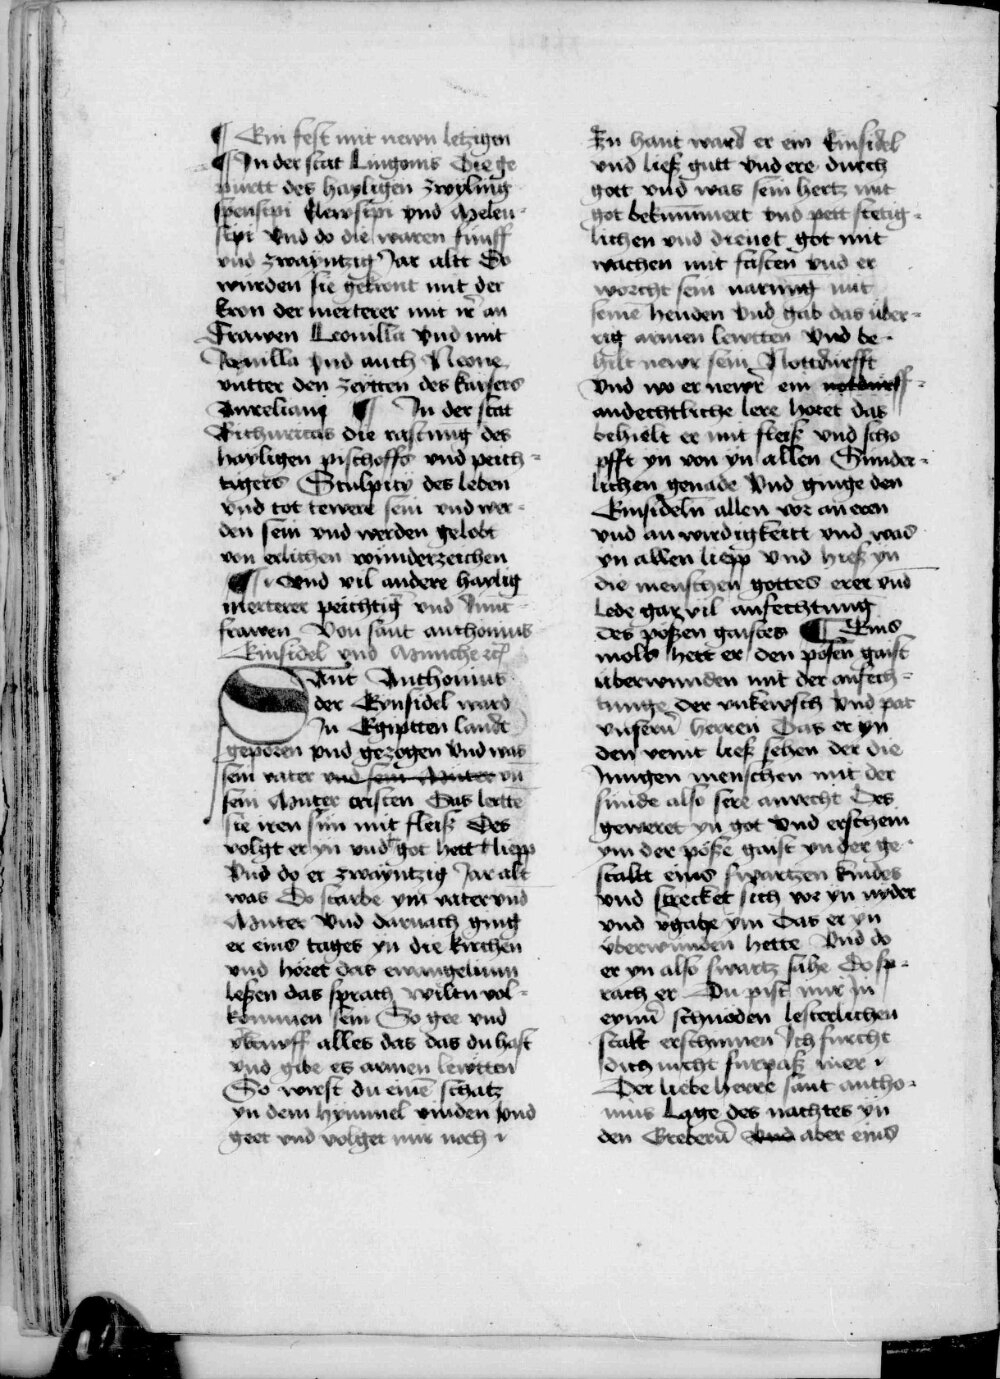 ¶ Ein fest mit newn letzigen
¶ In der stat Lingonis Die ge
purtt des hayligen zwyling
spensipi Elewsipi vnd Meleu-
sipi vnd do die waren fünff
vnd zwayntzig Jar altt Do
wurden sie gekront mit der
kron der merterer mit ir an
Frawen Leonilla vnd mit
Jonilla vnd auch Neone
vntter den zeytten des kaysers
Aureliani ¶ In der stat
Bithuricas die rastung des
hayligen pischoffs vnd peich-
tigers Sculpicij des leben
vnd tot tewere sein vnd wer-
den sein vnd werden gelobt
von erlichen wunderzeichen
¶ vnd vil andere haylig
merterer peichtig̃ vnd Junc-
frawen Von sant anthonius
Einsidel vnd Munche ꝛc
Sant Anthonius
der Eynsidel ward
In Egiptten landt
geporen vnd gezogen vnd was
sein vater vnd sein Muter vñ
sein Muter cristen Das lertte
sie iren sun mit fleiß Des
volgt er yn vnd got hett liepp
Vnd do er zwayntzig Jar alt
was Do starbe ym vater vnd
Muter Vnd darnach ging
er eins tages yn die kirchen
vnd höret das ewangelium
leßen das sprach wiltu vol-
kommen sein So gee vnd
vberuff alles das das du hast
vnd gibe es armen lewtten
So wirst du einẽ schatz
yn dem hymmel vinden vnd
geet vnd volget mir noch
Zu hant ward er ein Einsidel
vnd ließ gutt vnd ere durch
gott vnd was sein hertz mit
got bekummert vnd pett stetig-
lichen vnd dienet got mit
wachen mit fasten vnd er
worcht sein narung mit
seine henden vnd gab das über-
rig armen lewtten Vnd be-
hilt newr sein Nottdurfft
Vnd wo er newr ein notdurff-
andechtliche lere horet das
behielt er mit fleiß vnd scho
pfft yn von yn allen Sunder-
lichen genade Vnd ginge den
Einsideln allen vor an eren
vnd an wirdigkeitt vnd was
yn allen liepp Vnd hieß yn
die menschen gottes erer vnd
lede gar vil anfechtung
des pößen gaistes ¶ Eins
mols hett er den pösen gaist
überwunden mit der anfech-
tunge der vnkewsch Vnd pat
vnsern̄ herren Das er yn
den veint ließ sehen der die
Jungen menschen mit der
sünde also sere anvecht Des
geweret yn got Vnd erschein
ym der pöße gaist yn der ge-
staltt eins swartzen kindes
vnd strecket sich vor yn nyder
vnd v̈gahe ym Das er yn
überwunden hette Vnd do
er yn also swartz sahe Do sp-
rach er Du pist mir in
eynnr̄ schnöden lesterlichen
stalt erschinnen Ich furcht
dich nicht furpaß mer
Der liebe herre sant antho-
nius Lage des nachtes yn
den Greberñ Vnd aber eins